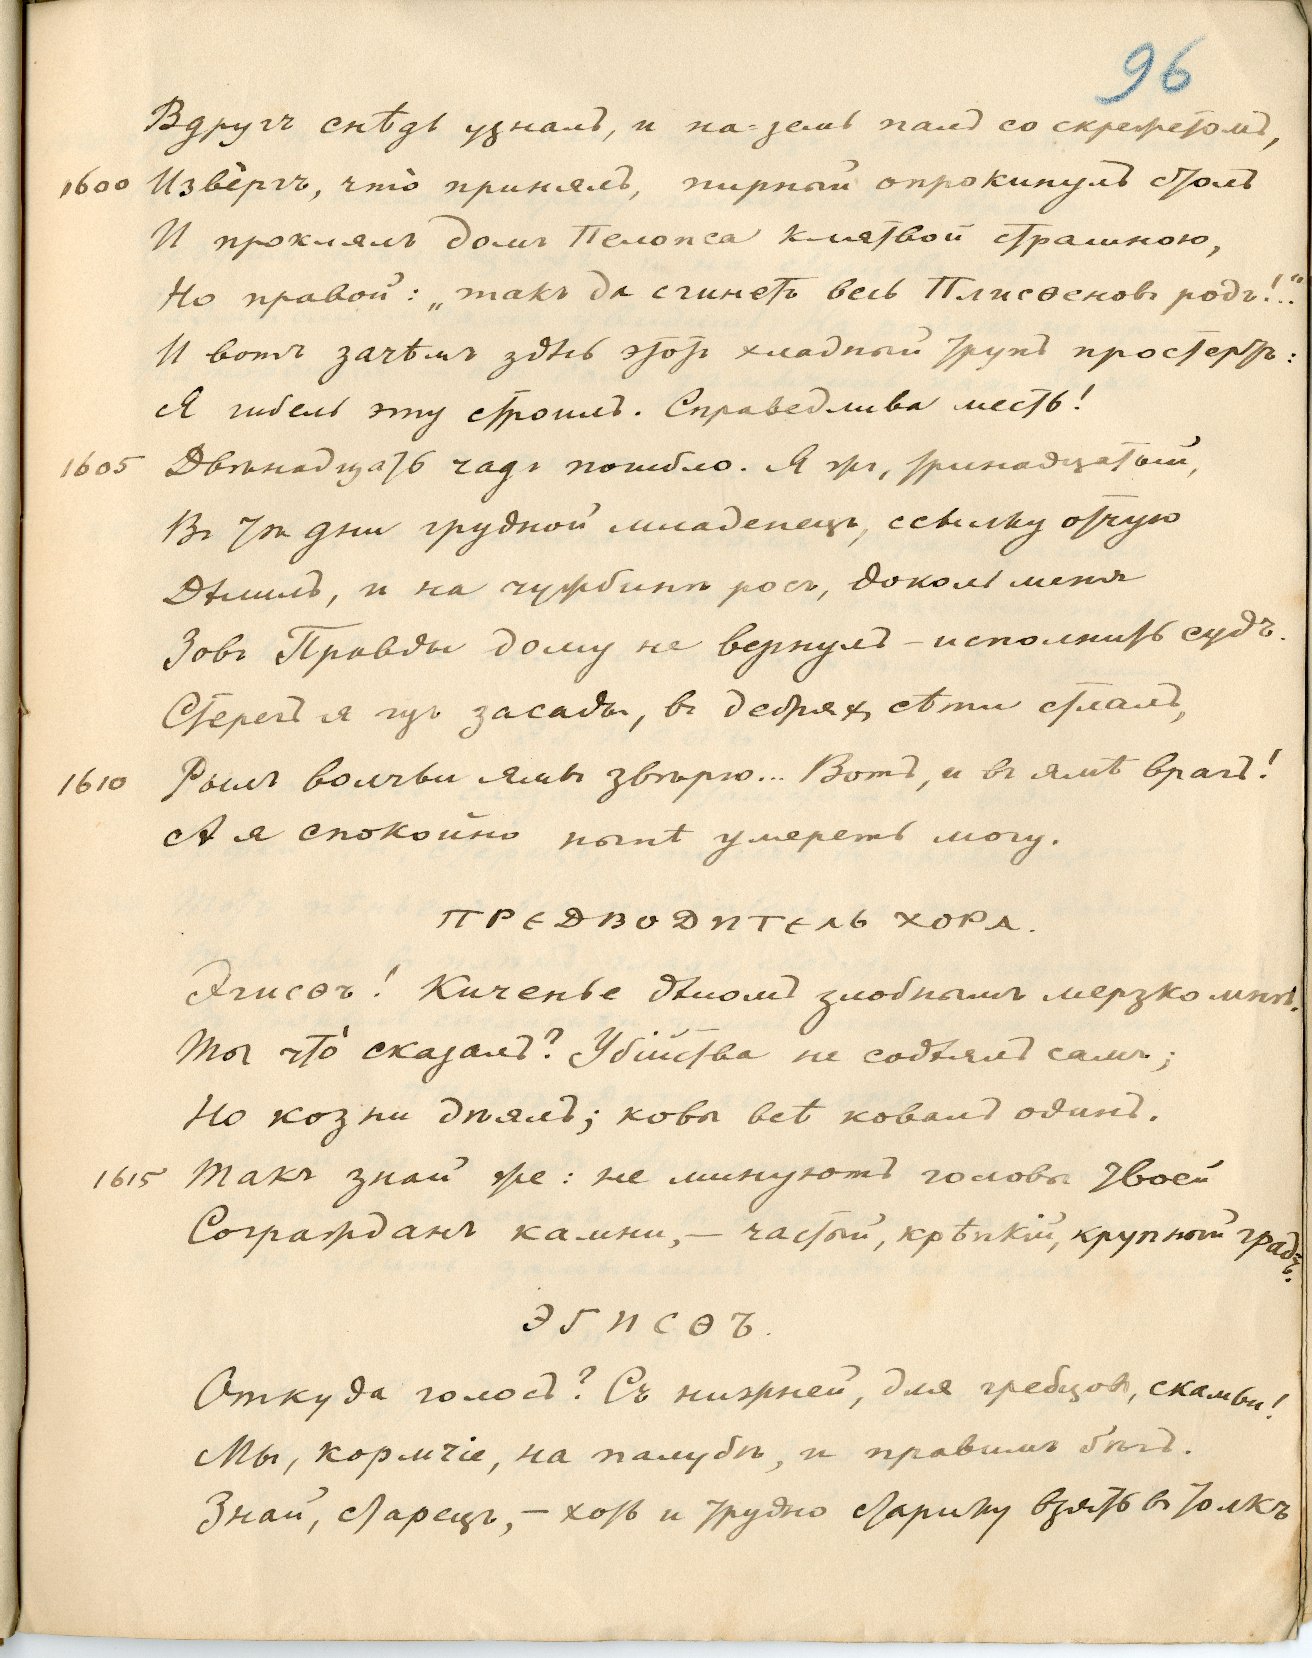 96
Вдругъ снѣдь узналъ, и на-земь палъ со скрежетомъ,
1600 Извергъ, что́ принялъ, пирный опрокинулъ столъ
И проклялъ домъ Пелопса клятвой страшною,
Но правой: „такъ да сгинетъ весь Плисѳеновъ родъ!.."
И вотъ зачѣмъ здѣсь этотъ хладный трупъ простертъ:
Я гибель эту строилъ. Справедлива месть!
1605 Двѣнадцать чадъ погибло. Я же, тринадцатый,
Въ тѣ дни грудной младенецъ, ссылку отчую
Дѣлилъ, и на чужбинѣ росъ, доколь меня
Зовъ Правды дому не вернулъ – исполнить судъ.
Стерегъ я изъ засады, въ дебряхъ сѣти стлалъ,
1610 Рылъ волчьи ямы звѣрю... Вотъ, и въ ямѣ врагъ!
А я спокойно нынѣ умереть могу.
ПРЕДВОДИТЕЛЬ ХОРА.
Эгисѳъ! Киченье дѣломъ злобнымъ мерзко мнѣ.
Ты что́ сказалъ? Убійства не содѣялъ самъ;
Но козни дѣялъ; ковы всѣ ковалъ одинъ.
1615 Такъ знай же: не минуютъ головы твоей
Согражданъ камни, – частый, крѣпкій, крупный градъ.
ЭГИСѲЪ.
Откуда голосъ? Съ нижней, для гребцовъ, скамьи!
Мы, кормчіе, на палубѣ, и правимъ бѣгъ.
Знай, старецъ, – хоть и трудно старику взять въ толкъ